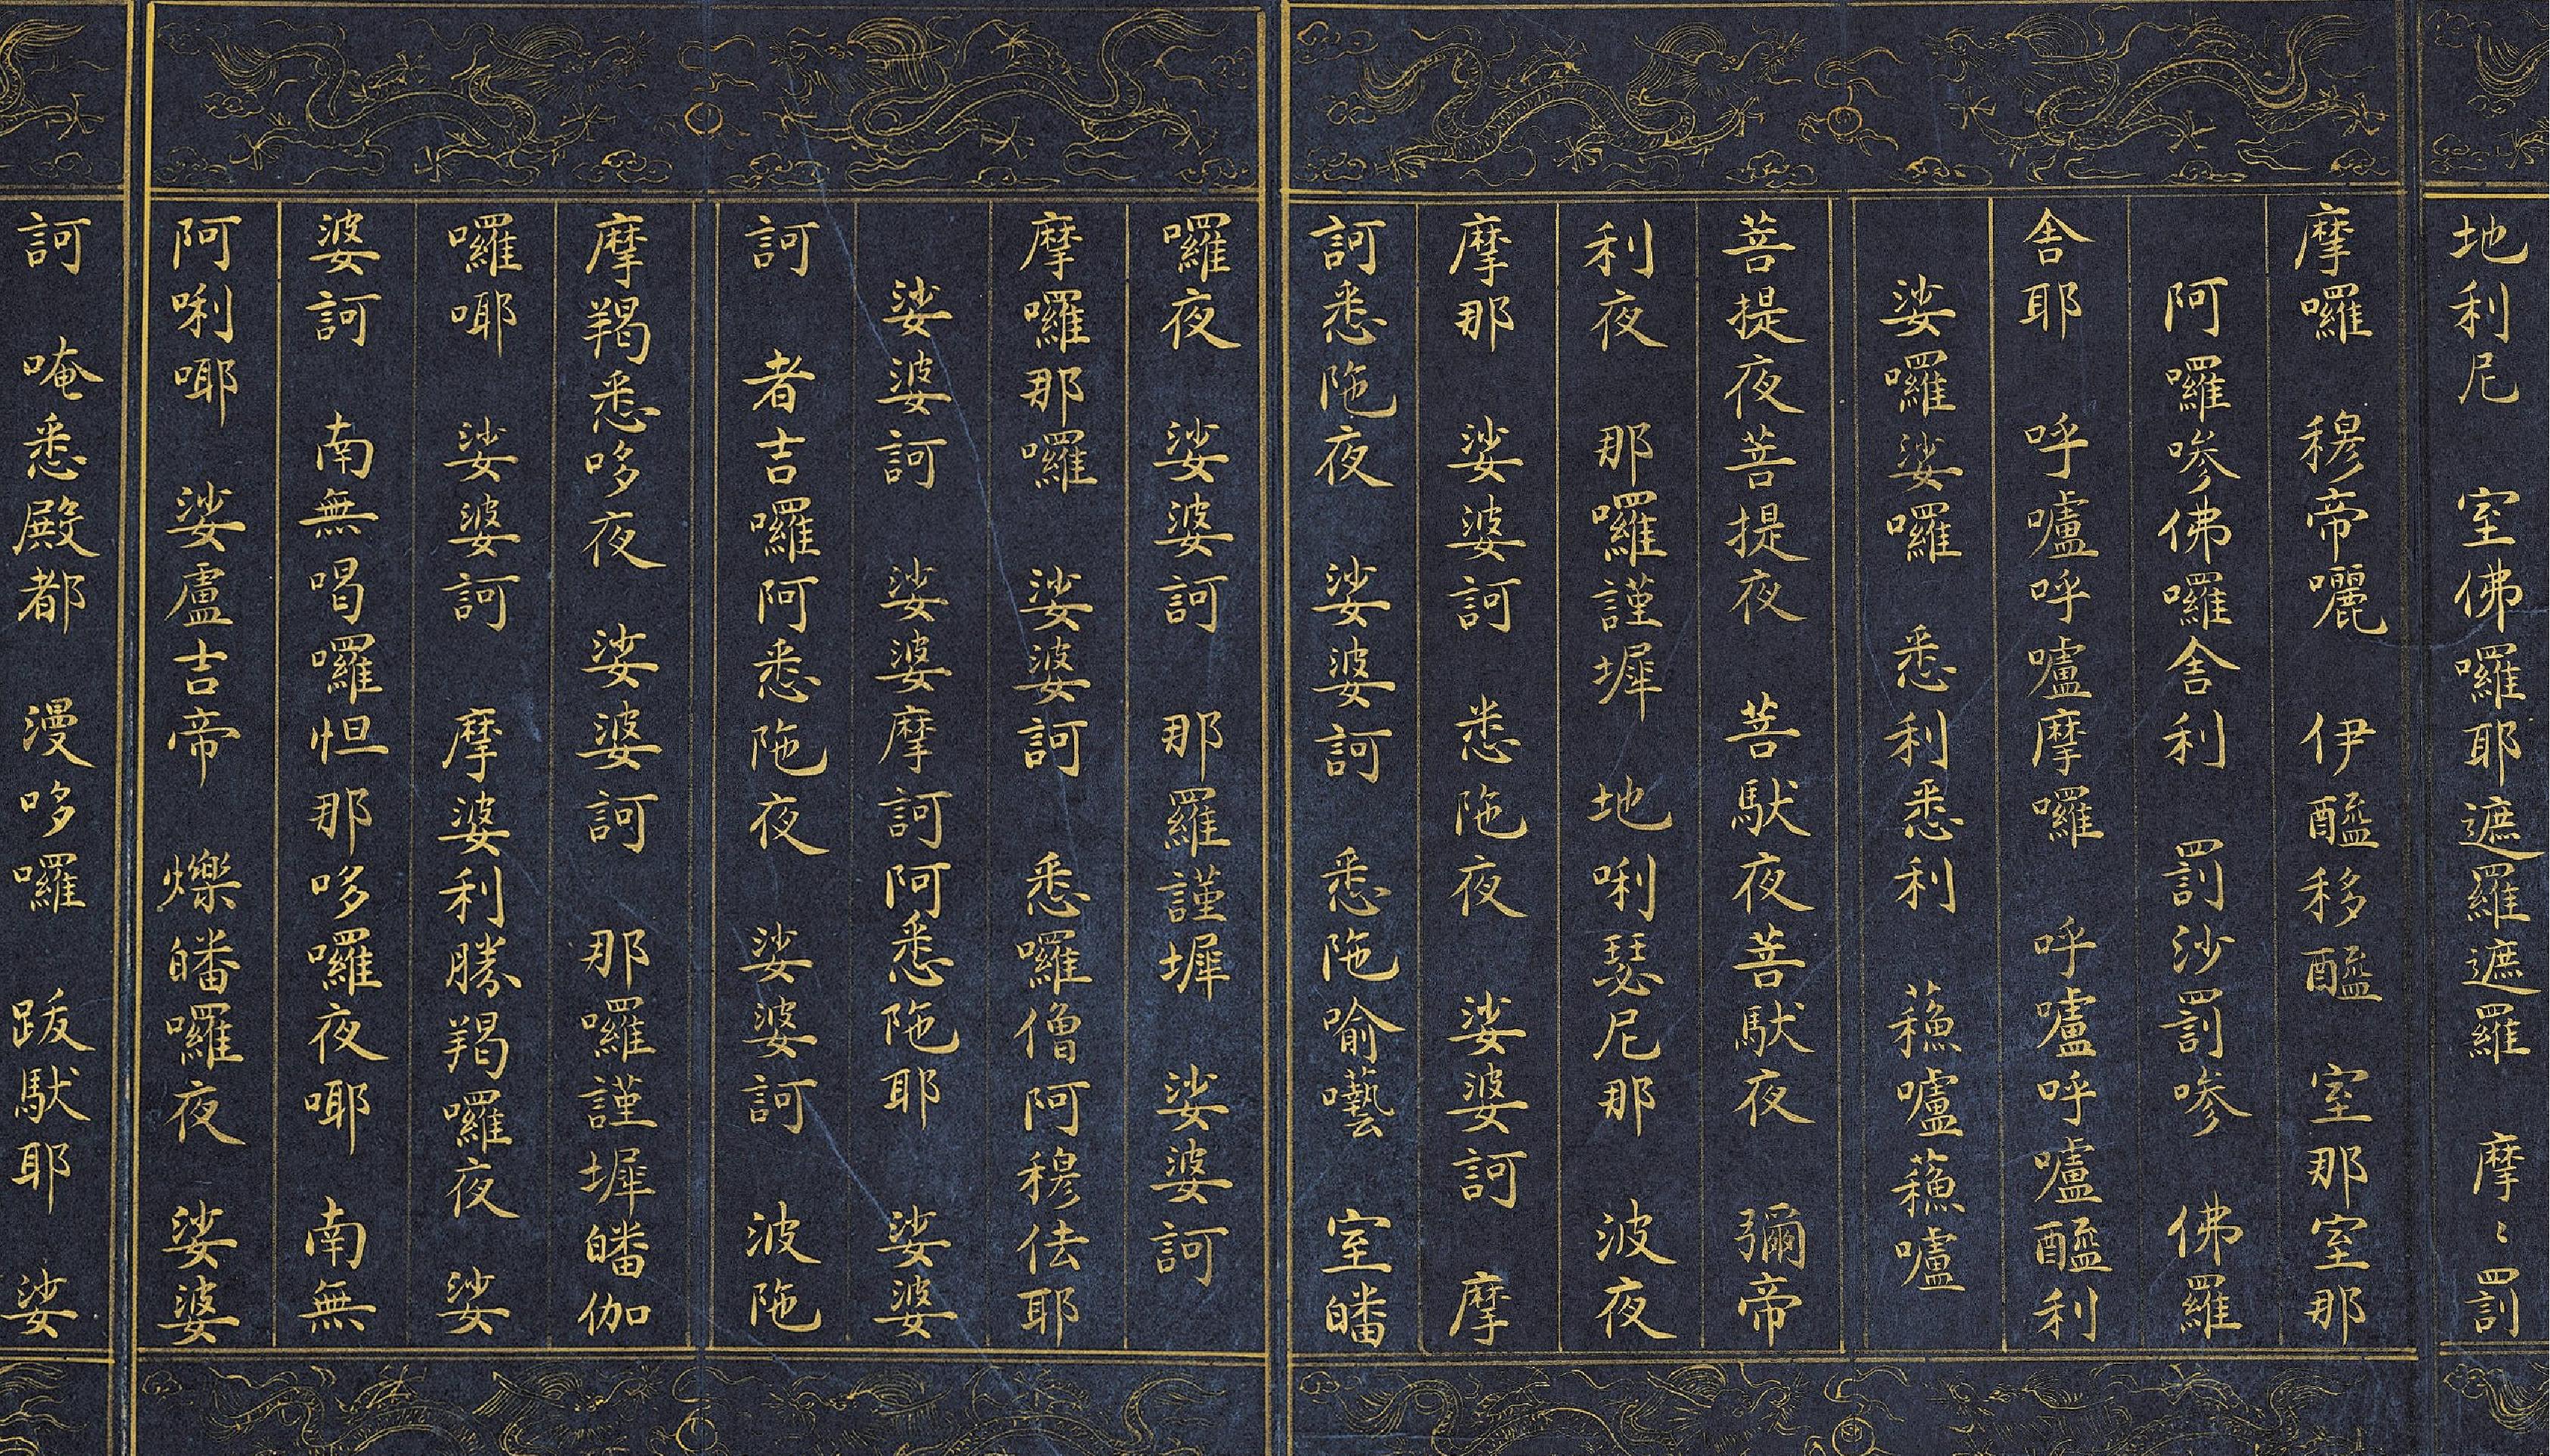 地利尼　室佛囉耶遮羅遮羅　摩〻罰
摩囉　穆帝囇　伊醯移醯　室那室那
阿囉嘇佛囉舍利　罰沙罰嘇　佛羅
舍耶　呼嚧呼嚧摩囉　呼嚧呼嚧醯利
娑囉娑囉　悉利悉利　蘓嚧蘓嚧
菩提夜菩提夜　菩馱夜菩馱夜　彌帝
利夜　那囉謹墀　地唎瑟尼那　波夜
摩那　娑婆訶　悉陁夜　娑婆訶　摩
訶悉陁夜　娑婆訶　悉陁喻囈　室皤
囉夜　娑婆訶　那羅謹墀　娑婆訶
摩囉那囉　娑婆訶　悉囉僧阿穆佉耶
娑婆訶　娑婆摩訶阿悉陁耶　娑婆
訶　者吉囉阿悉陁夜　娑婆訶　波陁
摩羯悉哆夜　娑婆訶　那囉謹墀皤伽
囉㖿　娑婆訶　摩婆利勝羯囉夜　娑
婆訶　南無喝囉怛那哆囉夜㖿　南無
阿唎㖿　娑盧吉帝　爍皤囉夜　娑婆
訶　唵悉殿都　漫哆囉　跋馱耶　娑